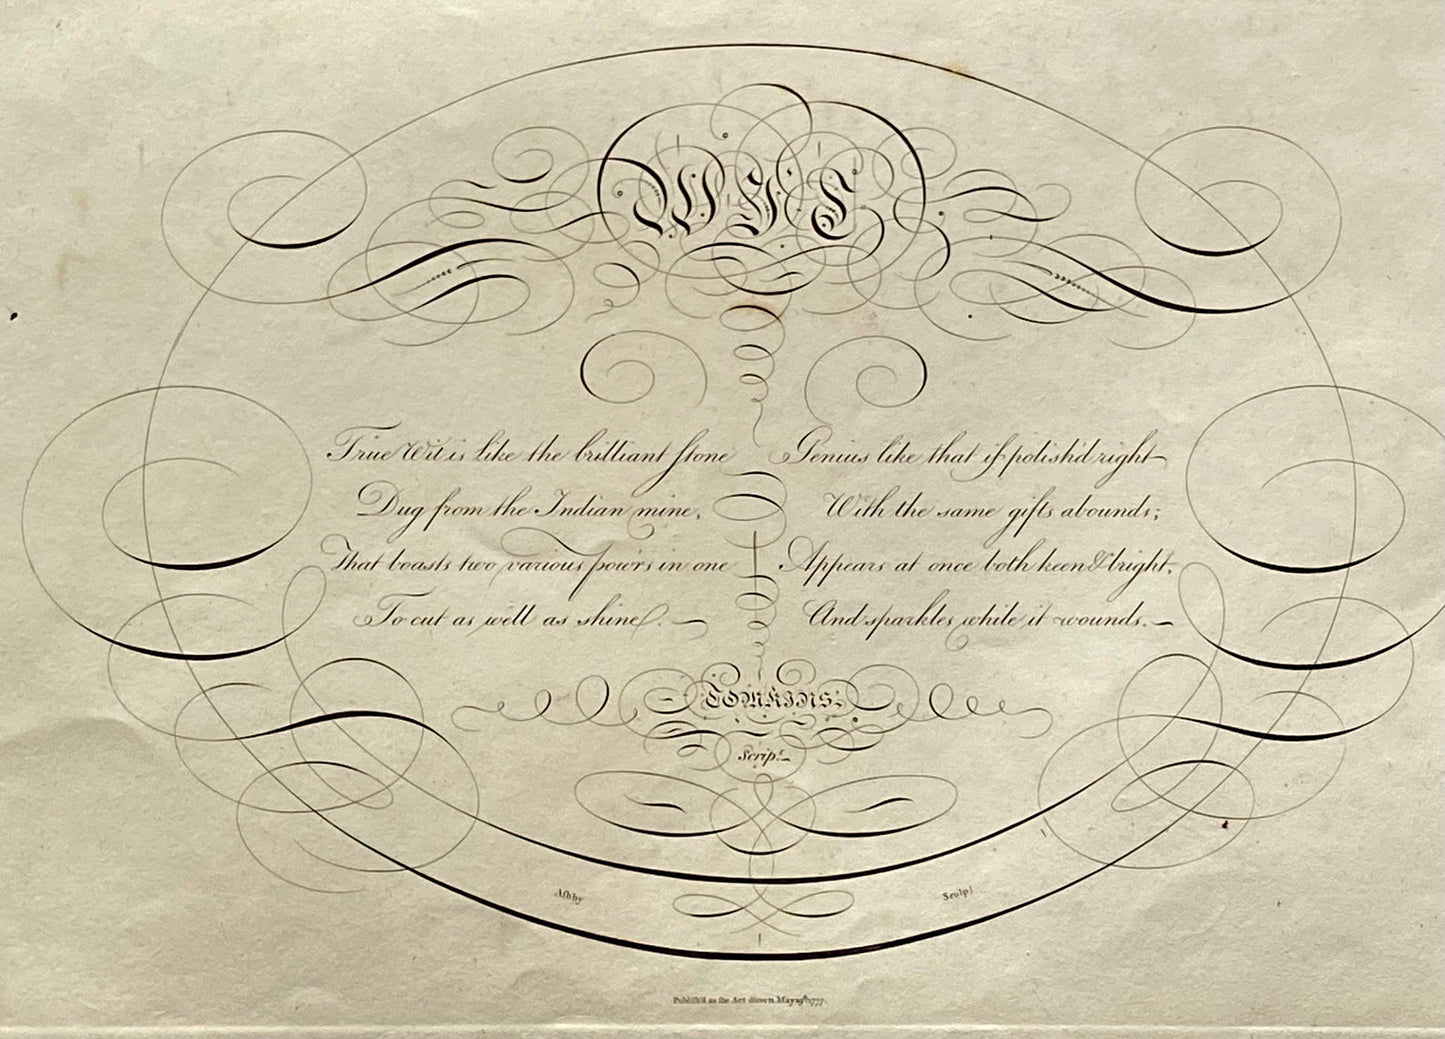 WIT
True Wit is like the brilliant ſtone
Dug from the Indian mine,
That boasts two various pow'rs in one
To cut as well as shine.
Genius like that if polish'd right
With the same gifts abounds;
Appears at once both keen & bright,
And sparkles while it wounds.
TOMKINS.
Scrip.t
Aſhby Sculp.t
Publiſh'd as the Act directs May 19th 1777.